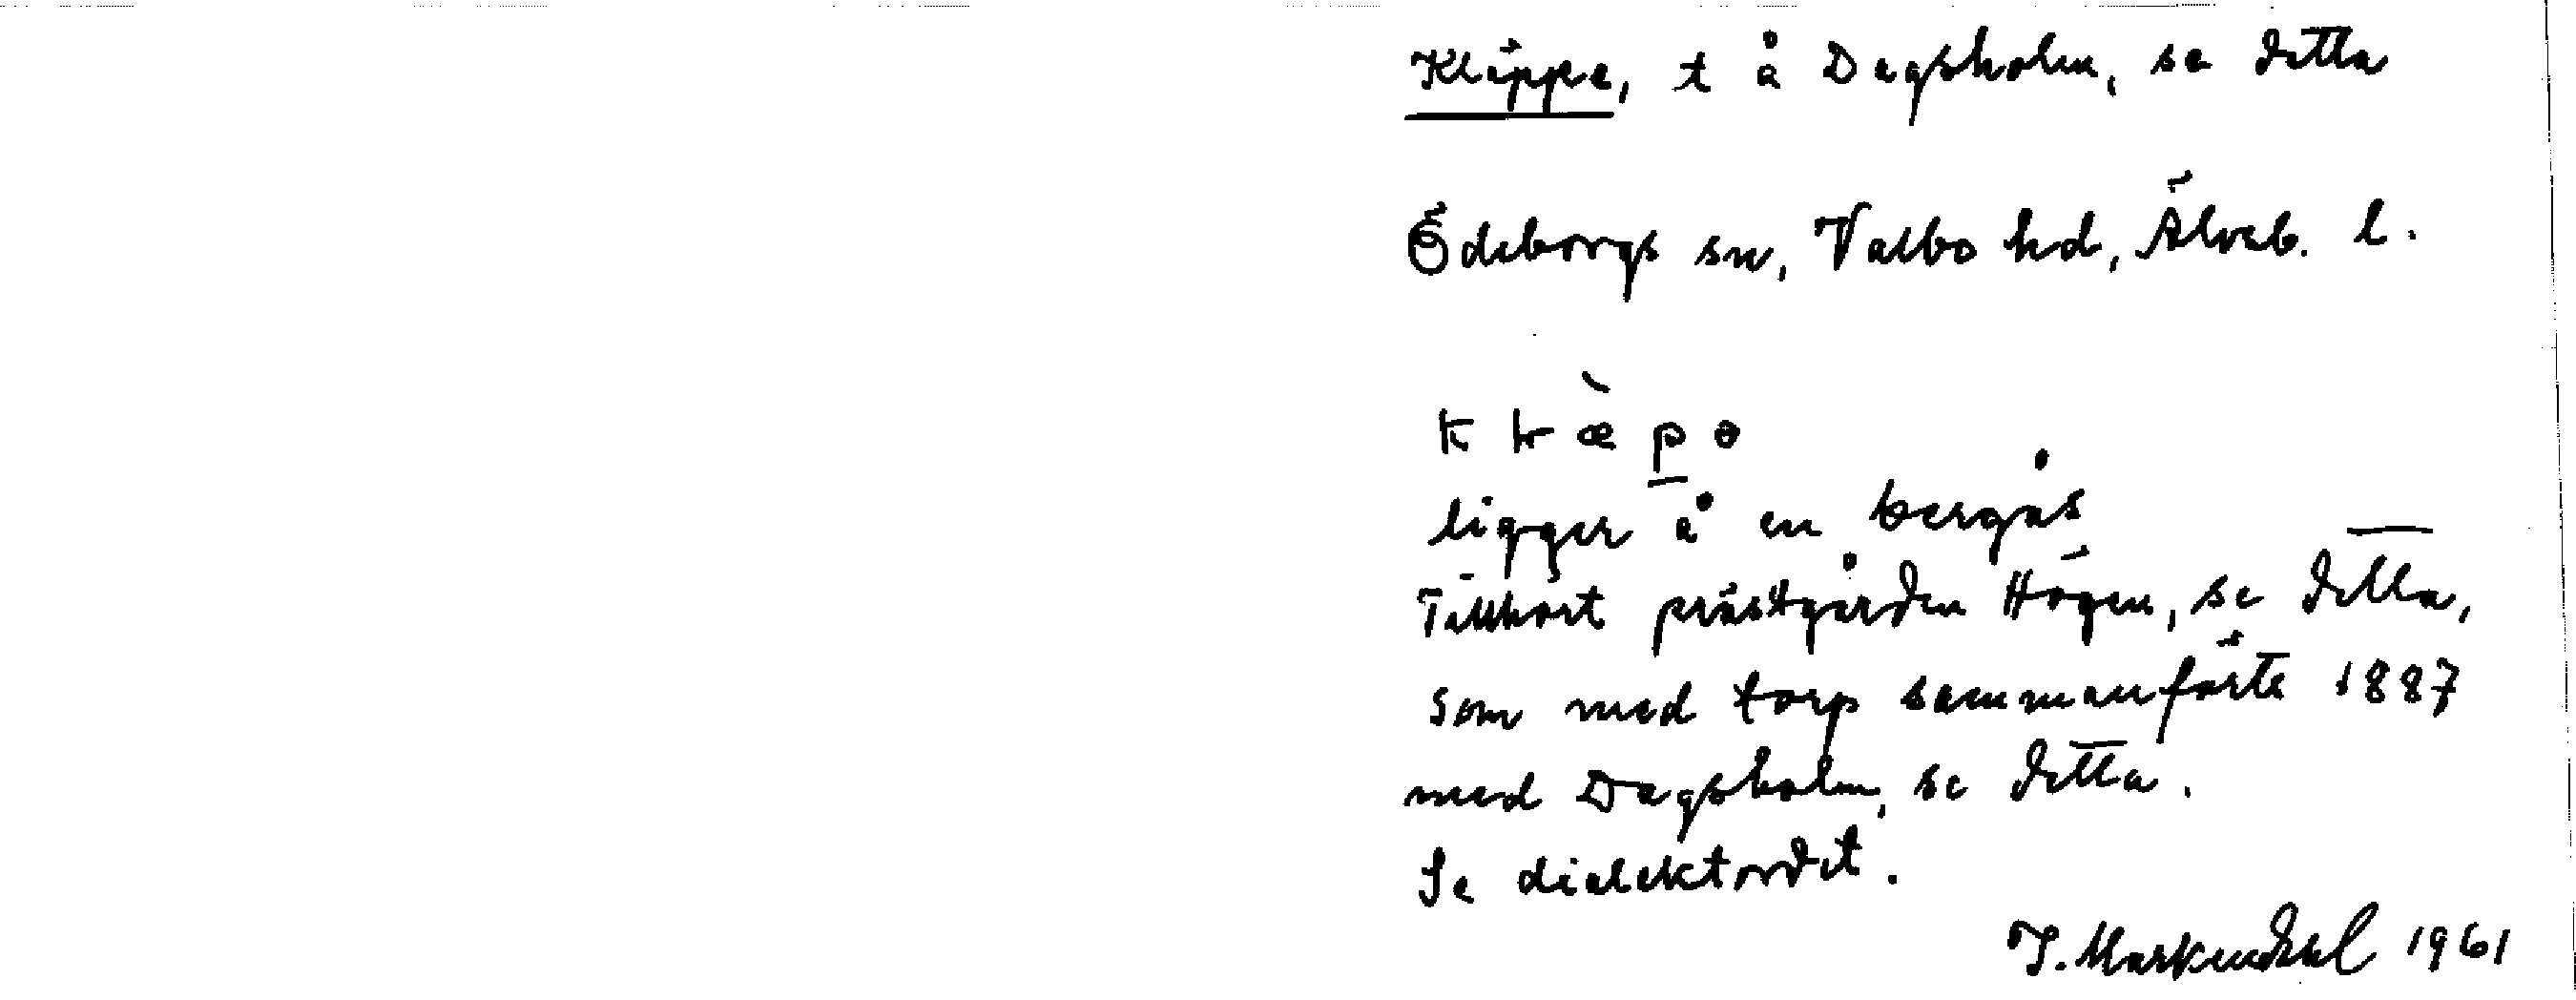 Kläppe, t å Dagsholm, se detta
Ödeborgs sn, Valbo hd, Älvsb. l.
ligger å en bergås
Tillhört prästgården Högen, se detta,
som med torp sammanförts 1887
med Dagsholm, se detta.
Se dialektordet.
1961